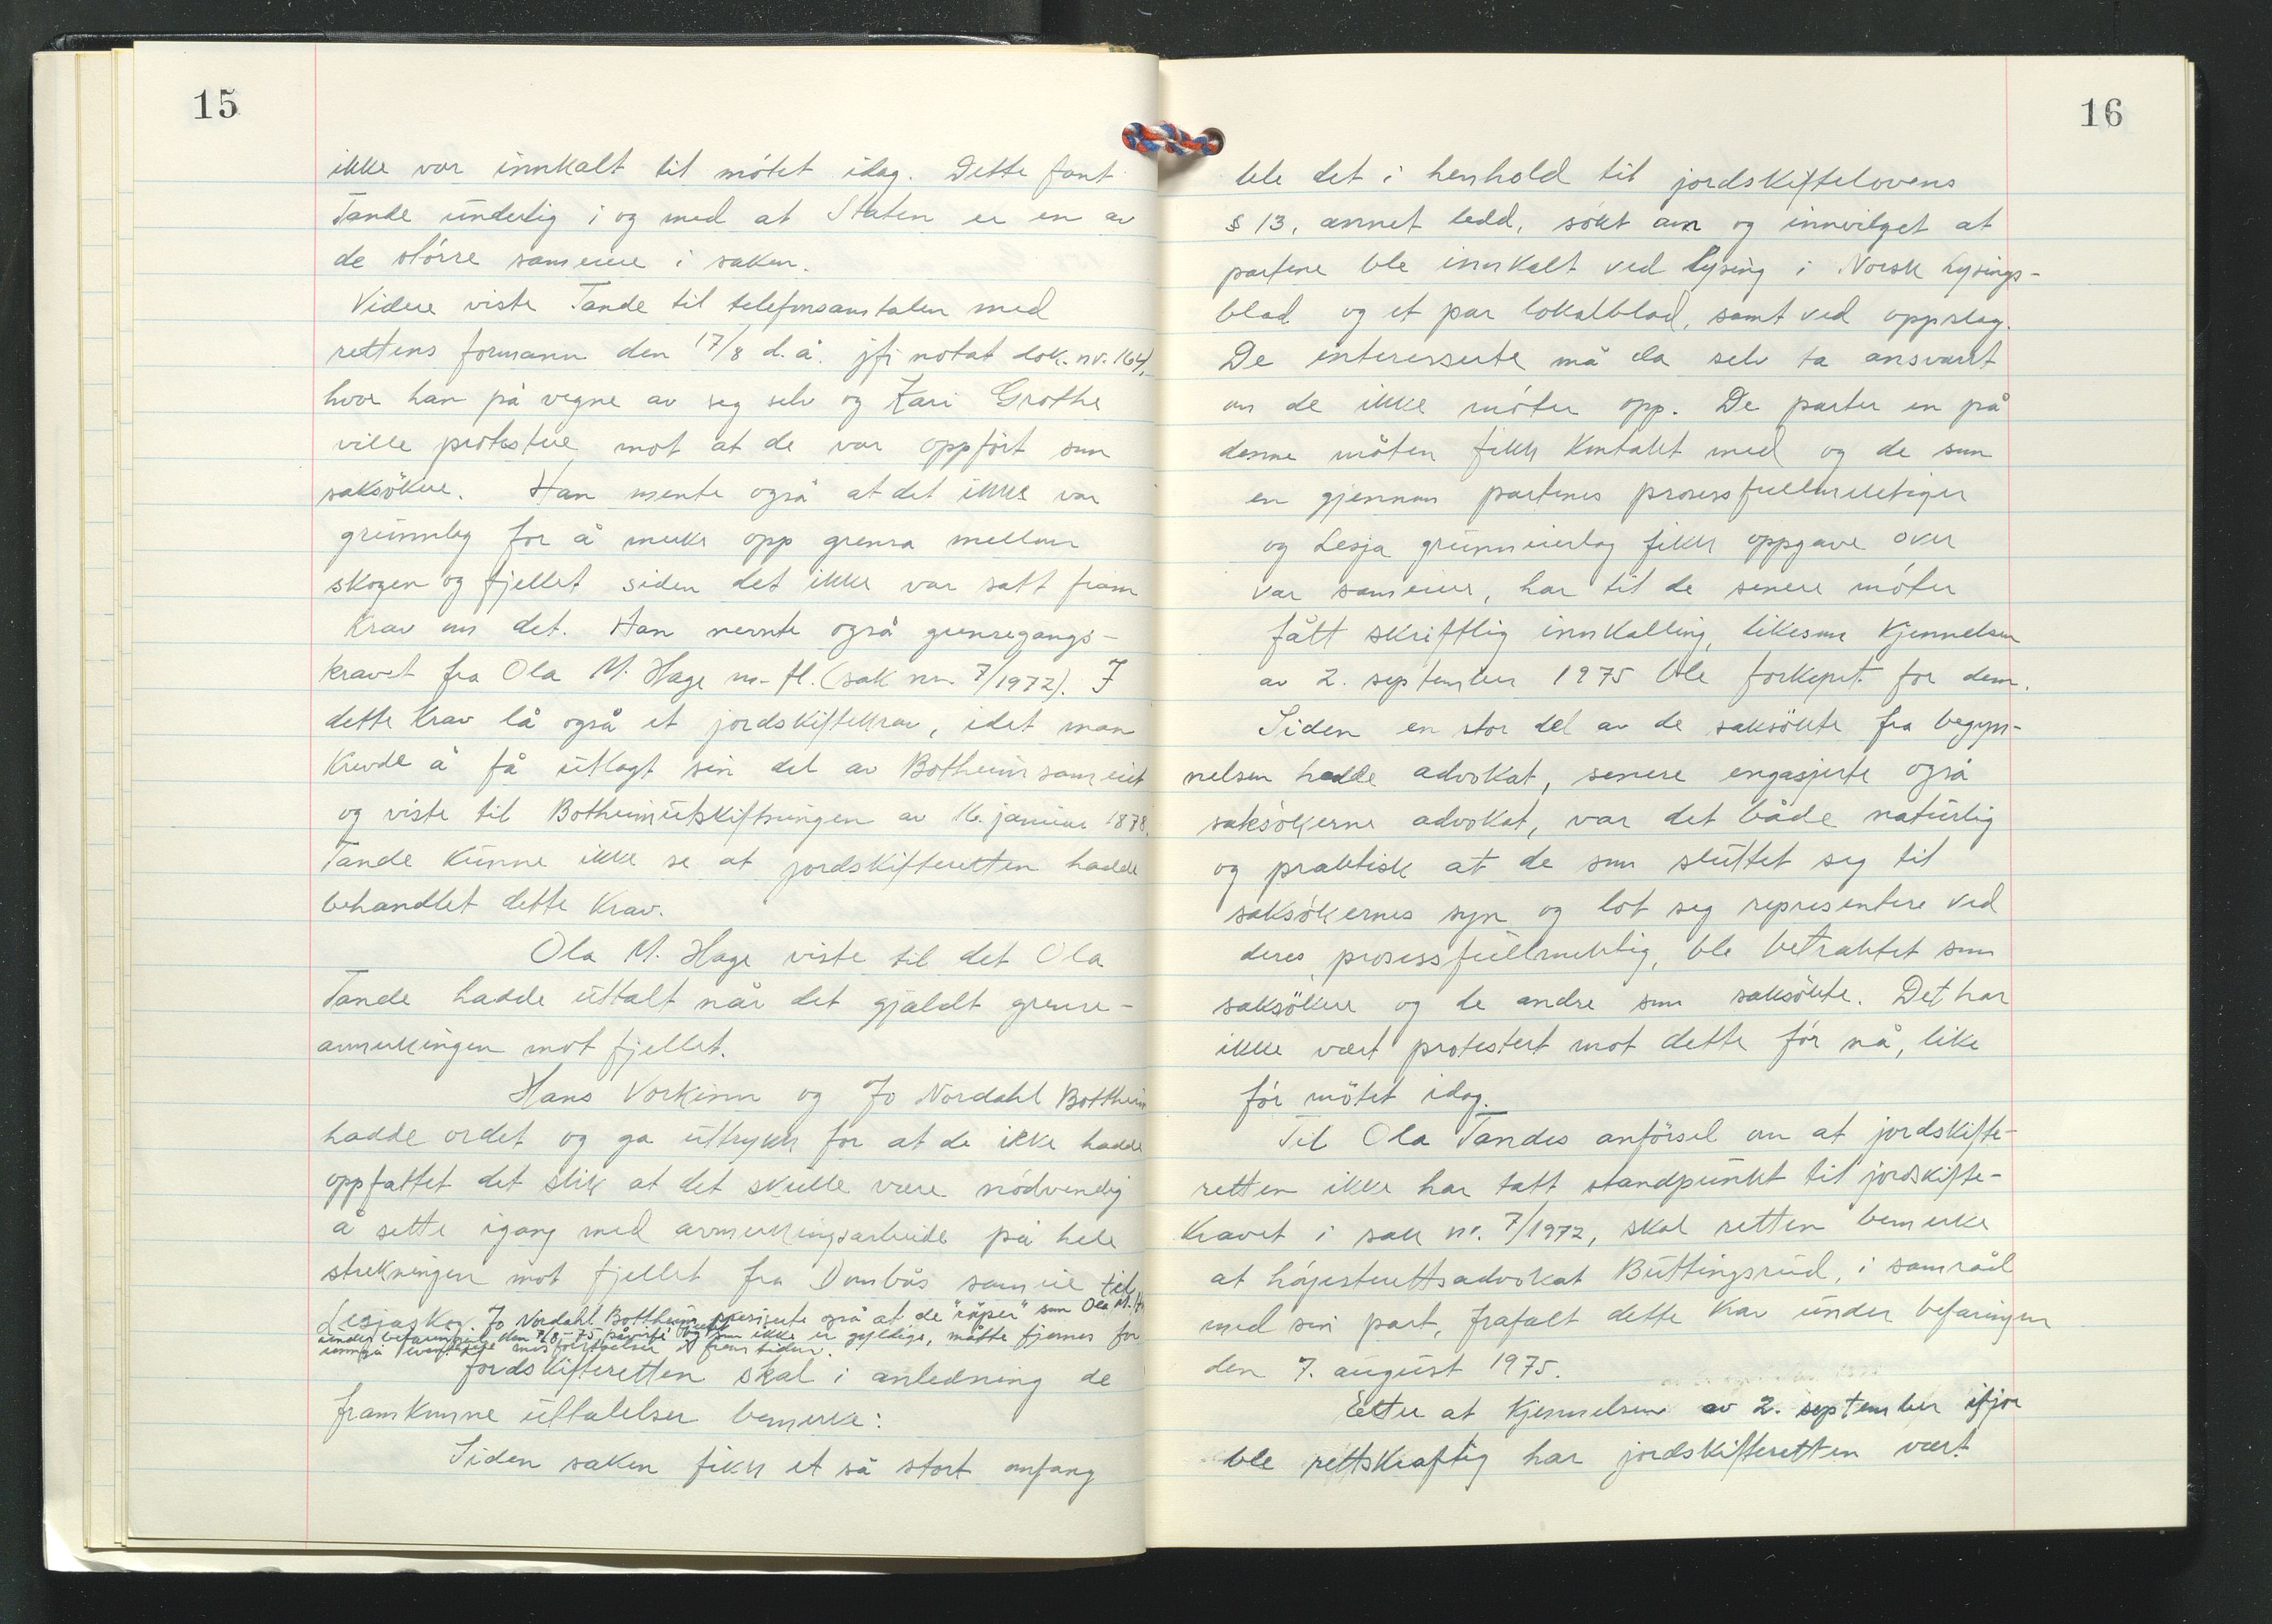 15
ikke var innkalt til møtet idag. Dette fant
Tande underlig i og med at Staten er en av
de større sameiere i saken.
Videre viste Tande til telefonsamtalen med
rettens formann den 17/8 d.å. jfr notat dok. nr. 164,
hvor han på vegne av seg selv og Kari Grothe
ville protestere mot at de var oppført som
saksökere. Han mente også at det ikke var
grunnlag for å merke opp grensa mellom
skogen og fjellet siden det ikke var satt fram
krav om det. Han nevnte også grensegangs-
kravet fra Ola M. Hage m. fl. (sak nr. 7/1972). I
dette krav lå også et jordskiftekrav, idet man
krevde å få utlagt sin del av Botheim sameiet
og viste til Botheimutskiftningen av 16. januar 1878.
Tande kunne ikke se at jordskifteretten hadde
behandlet dette krav.
Ola M. Hage viste til det Ola
Tande hadde uttalt når det gjaldt grense-
avmerkingen mot fjellet.
Hans Vorkinn og Jo Nordahl Bottheim
hadde ordet og ga uttrykk for at de ikke hadde
oppfattet det slik at det skulle være nödvendig
å sette igang med avmerkingsarbeide på hele
strekningen mot fjellet fra Dombås sameie til
Lesjaskog. Jo Nordahl Bottheim presiserte også at de "röyser" som Ola M. H.
under befaringen den 7/8-75 påviste og som ikke er gyldige, måtte fjernes for
unngå eventuelle misforståelser i framtiden.
Jordskifteretten skal i anledning de
framkomne uttalelser bemerke:
Siden saken fikk et så stort omfang
16
ble det i henhold til jordskiftelovens
§ 13, annet ledd, søkt om og innvilget at
partene ble innkalt ved lysing i Norsk Lysings-
blad og et par lokalblad, samt ved oppslag.
De interesserte må da selv ta ansvaret
om de ikke møter opp. De parter en på
denne måten fikk kontakt med og de som
en gjennom partenes prosessfullmektiger
og Lesja grunneierlag fikk oppgave over
var sameiere, har til de senere møter
fått skriftlig innkalling, likesom kjennelsen
av 2. september 1975 ble forkynt for dem.
Siden en stor del av de saksökte fra begyn-
nelsen hadde advokat, senere engasjerte også
saksökerne advokat, var det både naturlig
og praktisk at de som sluttet seg til
saksökernes syn og lot seg representere ved
deres prosessfullmektig, ble betraktet som
saksökere og de andre som saksökte. Det har
ikke vært protestert mot dette før nå, like
før møtet idag.
Til Ola Tandes anførsel om at jordskifte-
retten ikke har tatt standpunkt til jordskifte-
kravet i sak nr. 7/1972, skal retten bemerke
at høyesterettsadvokat Buttingsrud, i samråd
med sin part, frafalt dette krav under befaringen
den 7. august 1975.
Etter at kjennelsen av 2. september ifjor
ble rettskraftig har jordskifteretten vært